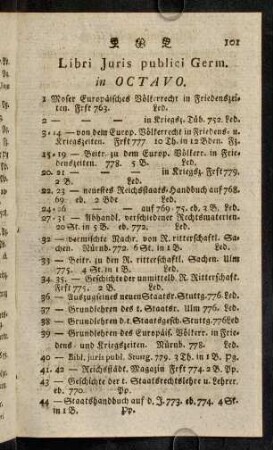 101
Libri Juris publici Germ.
in OCTAVO.
1 Moser Europäisches Völkerrecht in Friedenszei-
ten. Frkt 763. Led.
2 — — — in Kriegsz. Tüb. 752. Led.
3-14 — von dem Europ. Völkerrecht in Friedens- u.
Kriegszeiten. Frkt 777 10 Th. in 12 Bden. Fz.
15-19 — Beitr. zu dem Europ. Völkerr. in Frie-
denszeiten. 778. 5 B. Led.
20. 21 — — — in Kriegsz. Frkt 779.
2 B. Led.
22. 23 — neuestes Reichsstaats-Handbuch auf 768.
69. eb. 2 Bde Led.
24-26 — — auf 769-75. eb. 2 B. Led.
27-31 — Abhandl. verschiedener Rechtsmaterien.
20 St. in 5 B. 772. eb. Led.
32 — vermischte Nachr. von R. ritterschaftl. Sa-
chen. Nürnb. 772. 6 St. in 1 B. Led.
33 — Beitr. zu den R. ritterschaftl. Sachen. Ulm
775. 4 St. in 1 B. Led.
34. 35 — Geschichte der unmittelb. R. Ritterschaft.
Frkt 775. 2 B. Led.
36 — Auszug seines neuen Staatsr. Stuttg. 776. Led.
37 — Grundlehren des t. Staatsr. Ulm 776. Led.
38 — Grundlehren d. t. Staatsgesch. Stuttg. 776 Led
39 — Grundlehren des Europäis. Völkerr. in Frie-
dens- und Kriegszeiten. Nürnb. 778. Led.
40 — Bibl. juris publ. Stuttg. 779. 3 Th. in 1 B. Pg.
41. 42 — Reichsstädt. Magazin Frkt 774. 2 B. Pp.
43 — Geschichte der t. Staatsrechtslehre u. Lehrer.
eb. 770. Pp.
44 — Staatshandbuch auf d. J. 773. eb. 774. 4 St.
in 1 B. Pp.